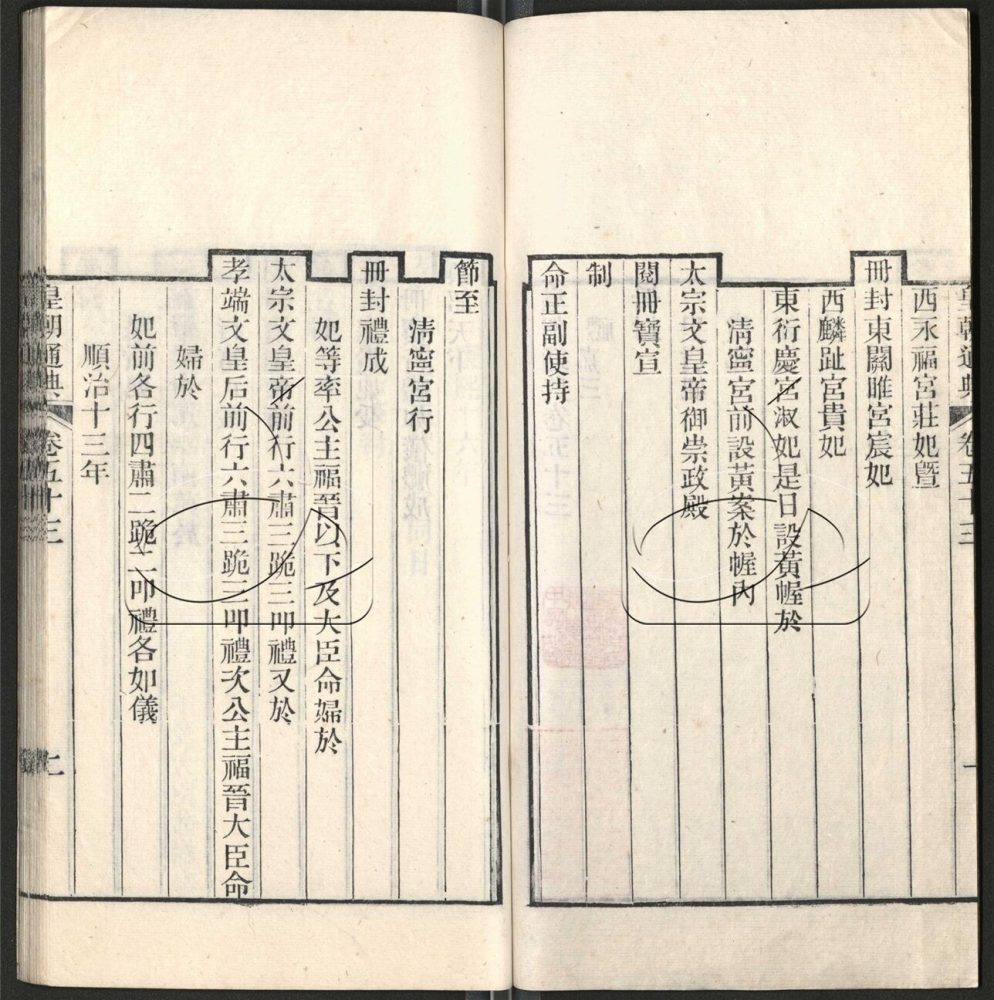 皇朝通典 卷五十三
西永福宮莊妃曁
冊封東關睢宮宸妃
西麟趾宮貴妃
東衍慶宮淑妃是日設黃幄於
淸寧宮前設黃案於幄內
太宗文皇帝御崇政殿
閱冊寶宣
制
命正副使持
節至
淸寧宮行
冊封禮成
妃等率公主福晉以下及大臣命婦於
太宗文皇帝前行六肅三跪三叩禮又於
孝端文皇后前行六肅三跪三叩禮次公主福晉大臣命
婦於
妃前各行四肅二跪二叩禮各如儀
順治十三年
皇朝通典 卷五十三